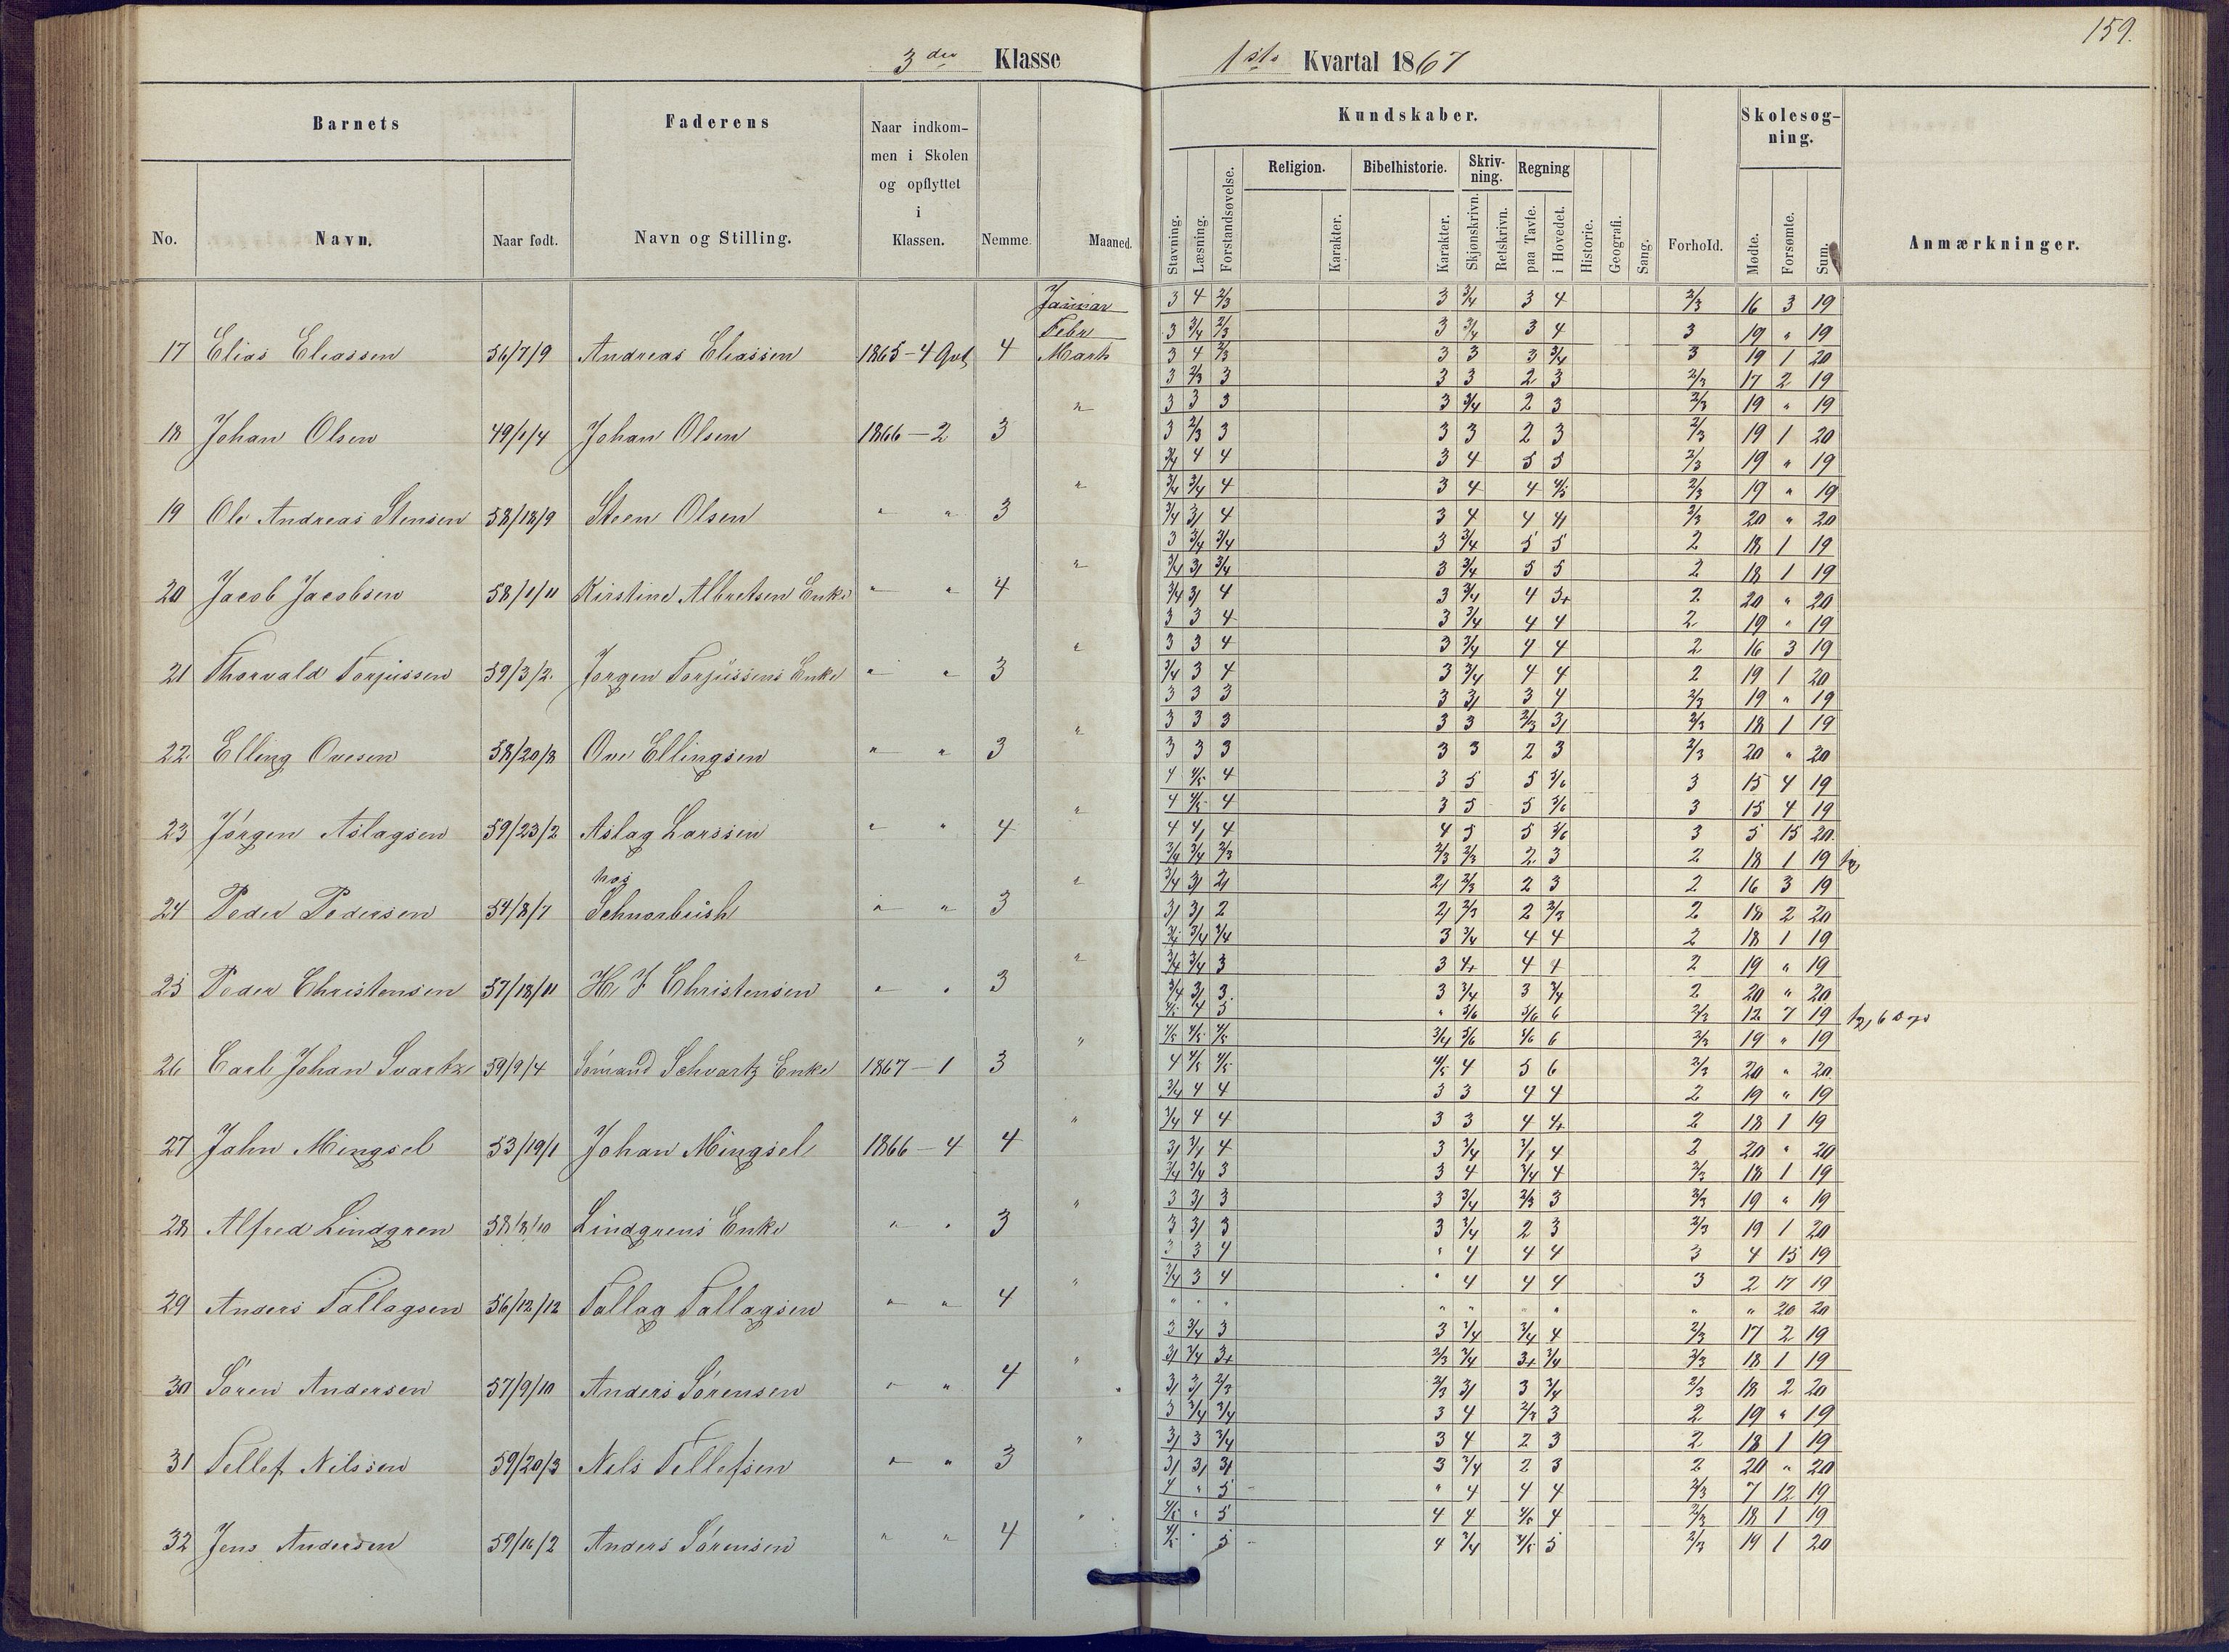 159.
3die Klasse 1ste Kvartal 1867
Barnets Faderens Naar indkommen i Skolen og opflyttet i Klassen. Nemme. Maaned. Kundskaber. Forhold. Skolesøgning. Anmærkninger.
No. Navn. Naar født. Navn og Stilling.
Stavning. Læsning. Forstandsøvelse. Religion. Karakter. Bibelhistorie. Karakter. Skrivning. Skjønskrivn. Retskrivn. Regning paa Tavle. i Hovedet. Historie. Geografi. Sang. Mødte. Forsømte. Sum.
Januar 3 4 2/3 3 3/4 3 4 2/3 16 3 19
Febr 3 3/4 2/3 3 3/4 3 4 3 19 " 19
17 Elias Eliassen 56/7/9 Andreas Eliassen 1865-4 Qvt 4 Marts 3 4 2/3 3 3 3 3/4 3 19 1 20
3 2/3 3 3 3 2 3 2/3 17 2 19
" 3 3 3 3 3/4 2 3 2/3 19 " 19
18 Johan Olsen 49/1/4 Johan Olsen 1866-2 3 3 2/3 3 3 3 2 3 2/3 19 1 20
3/4 4 4 3 4 5 5 2/3 19 " 19
" 3/4 3/4 4 3 4 4 4/5 2/3 19 " 19
19 Ole Andreas Stensen 58/18/9 Steen Olsen " " 3 3/4 3/ 4 3 4 4 4/ 2/3 20 " 20
3 3/4 3/4 3 3/4 5 5 2 18 1 19
" 3/4 3/ 3/4 3 3/4 5 5 2 18 1 19
20 Jacob Jacobsen 58/1/11 Kirstine Albretsen Enke " " 4 3/4 3/ 4 3 3/4 4 3+ 2 20 " 20
3 3 4 3 3/4 4 4 2 19 " 19
" 3 3 4 3 3/4 4 4 2 16 3 19
21 Thorvald Torjussen 59/3/2 Jørgen Torjussens Enke " " 3 3/4 3 4 3 3/4 4 4 2 19 1 20
3 3 3 3 3/ 3 4 2/3 19 " 19
" 3 3 3 3 3 2/3 3/ 2/3 18 1 19
22 Elling Ovesen 58/20/8 Ove Ellingsen " " 3 3 3 3 3 3 2 3 2/3 20 " 20
4 4/5 4 3 5 5 5/6 3 15 4 19
" 4 4/5 4 3 5 5 5/6 3 15 4 19
23 Jørgen Aslagsen 59/23/2 Aslag Larssen " " 4 4 4/ 4 4 5 5 5/6 3 5 15 20
3/4 3/4 2/3 2/3 2/3 2 3 2 18 1 19
hos " 3/4 3/ 2/ 2/ 2/3 2 3 2 16 3 19
24 Peder Pedersen 54/8/7 Schnorbush " " 3 3/ 3/ 2 2/ 2/3 2 2/3 2 18 2 20
3/4 3/4 3/4 3 3/4 4 4 2 18 1 19
" 3/4 3/4 3 3 4+ 4 4 2 19 " 19
25 Peder Christensen 57/18/11 H. J. Christensen " " 3 3/4 3/ 3 3 3/4 3 3/4 2 20 " 20
4/5 4 5 " 5/6 5/6 6 2/3 12 7 19
" 4/5 4/5 4/5 3/4 5/6 5/6 6 2/3 19 " 19
26 Carl Johan Svartz 59/9/4 Sømand Schvartz Enke 1867-1 3 4 4/5 4/5 4/5 4 5 6 2/3 20 " 20
3/4 4 4 3 3 4 4 2 19 " 19
" 3/4 4 4 3 3 4 4+ 2 18 1 19
27 John Mingsel 53/19/1 Johan Mingsel 1866-4 4 3/ 3/4 4 3 3/4 3/4 4 2 20 " 20
3/4 3/4 3 3 4 3/4 4 2/3 18 1 19
" 3 3/ 3 3 3/4 2/3 3 2/3 19 " 19
28 Alfred Lindgren 58/8/10 Lindgrens Enke " " 3 3 3/ 3 3 3/4 2 3 2/3 19 1 20
3 3 4 " 4 4 4 3 4 15 19
" 3/4 3 4 " 4 4 4 3 2 17 19
29 Anders Tallagsen 56/12/12 Tallag Tallagsen " " 4 " " " " " " " " " 20 20
3 3/4 3 3 3/4 3/4 4 2/3 17 2 19
" 3/ 3/4 3+ 2/3 3/4 3+ 3/4 2/3 18 1 19
30 Søren Andersen 57/9/10 Anders Sørensen " " 4 3/ 3/ 2/3 2/3 3/ 3 3/4 2/3 18 2 20
3 3/4 3/4 3 4 2/3 3 2 19 " 19
" 3/ 3 3/4 3 4 2 3 2 18 1 19
31 Tellef Nilssen 59/20/3 Nils Tellefsen " " 3 3/ 3/ 3/ 3 3/4 2 3 2 20 " 20
4 " 5 " 4 4 4 2/3 7 12 19
" 4/5 " 5 4 4 4/5 4 2/3 18 1 19
32 Jens Andersen 59/16/2 Anders Sørensen " " 4 4/5 " 5 4 3/4 4/5 5 2/3 19 1 20